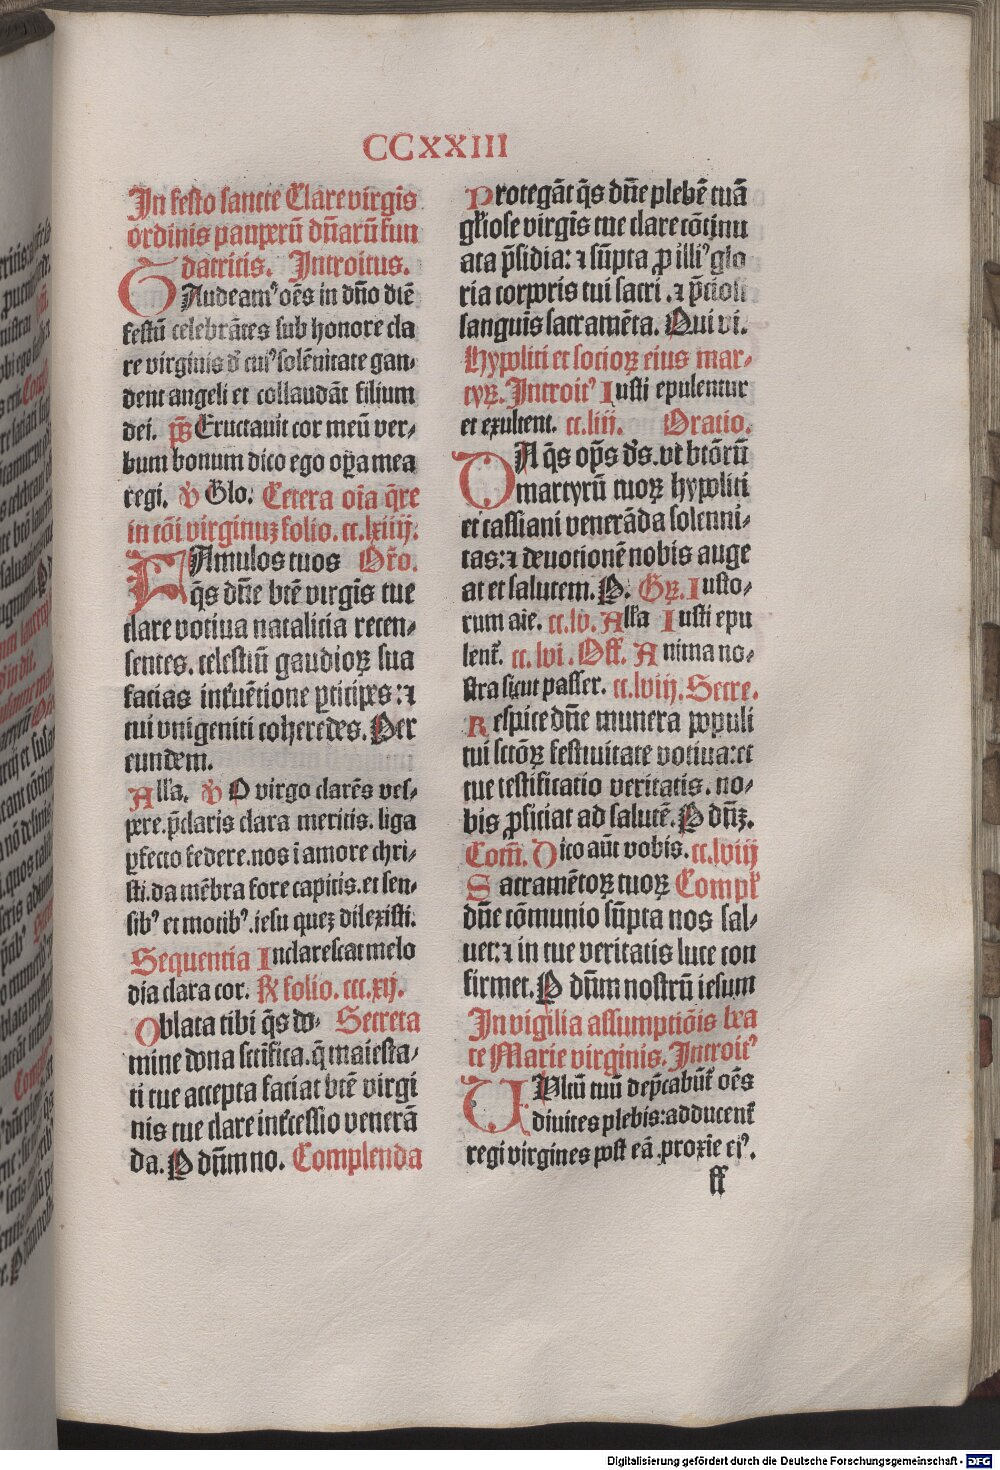 CCXXIII
In festo sancte Clare virgīs
ordinis pauperū dn̄arū fun
datricis. Introitus.
GAudeamꝰ oēs in dn̄o diē
festū celebrātes sub honore cla
re virginis d̄ cuiꝰ solēnitate gau⸗
dent angeli et collaudāt filium
dei. p̄s Eructauit cor meū ver⸗
bum bonum dico ego oꝑa mea
regi. ℣ Glo. Cetera oīa q̄re
in cōi virginuꝫ folio. cc.lxiiij.
FAmulos tuos Or̄o.
q̄s dn̄e btē virgīs tue
clare votiua natalicia recen⸗
sentes. celestiū gaudioꝝ sua
facias int̄uētione ꝑticipes: ⁊
tui vnigeniti coheredes. Per
eundem.
Alla. ℣ O virgo clarēs ves⸗
pere. p̄claris clara meritis. liga
ꝑfecto federe. nos ī amore chri⸗
sti. da mēbra fore capitis. et sen⸗
sibꝰ et motibꝰ. iesu queꝫ dilexisti.
Sequentia Inclarescat melo
dia clara cor. R̸ folio. ccc.xij.
Oblata tibi q̄s do⸗ Secreta
mine dona scīfica. q̄ maiesta⸗
ti tue accepta faciat btē virgi
nis tue clare int̄cessio venerā
da. P dn̄m no. Complenda
Protegāt q̄s dn̄e plebē tuā
gl̄iose virgīs tue clare cōtinu
ata p̄sidia: ⁊ sūpta ꝓ illiꝰ glo
ria corporis tui sacri. ⁊ p̄ciosi
sanguīs sacramēta. Qui vi.
Hypoliti et socioꝝ eius mar⸗
tyꝝ. Introitꝰ Iusti epulentur
et exultent. cc.liij. Oratio.
DA q̄s op̄s d̄s. vt btōrū
martyrū tuoꝝ hypoliti
et cassiani venerāda solenni⸗
tas: ⁊ deuotionē nobis auge
at et salutem. P. Gꝝ. Iusto⸗
rum aīe. cc.lv. Alla Iusti epu
lent̄. cc.lvi. Off. Anima no⸗
stra sicut passer. cc.lviij. Secre.
Respice dn̄e munera populi
tui sctōꝝ festiuitate votiua: et
tue testificatio veritatis. no⸗
bis ꝓficiat ad salutē. P dn̄ꝫ.
Com̄. Dico aūt vobis. cc.lviij
Sacramētoꝝ tuoꝝ Compl̄
dn̄e cōmunio sūpta nos sal⸗
uet: ⁊ in tue veritatis luce con
firmet. P dn̄m nostrū iesum
In vigilia assumptiōis bea
te Marie virginis. Introitꝰ
VUltū tuū dep̄cabūt̄ oēs
diuites plebis: adducent̄
regi virgines post eā. proxīe eiꝰ.
ff
Digitalisierung gefördert durch die Deutsche Forschungsgemeinschaft - DFG